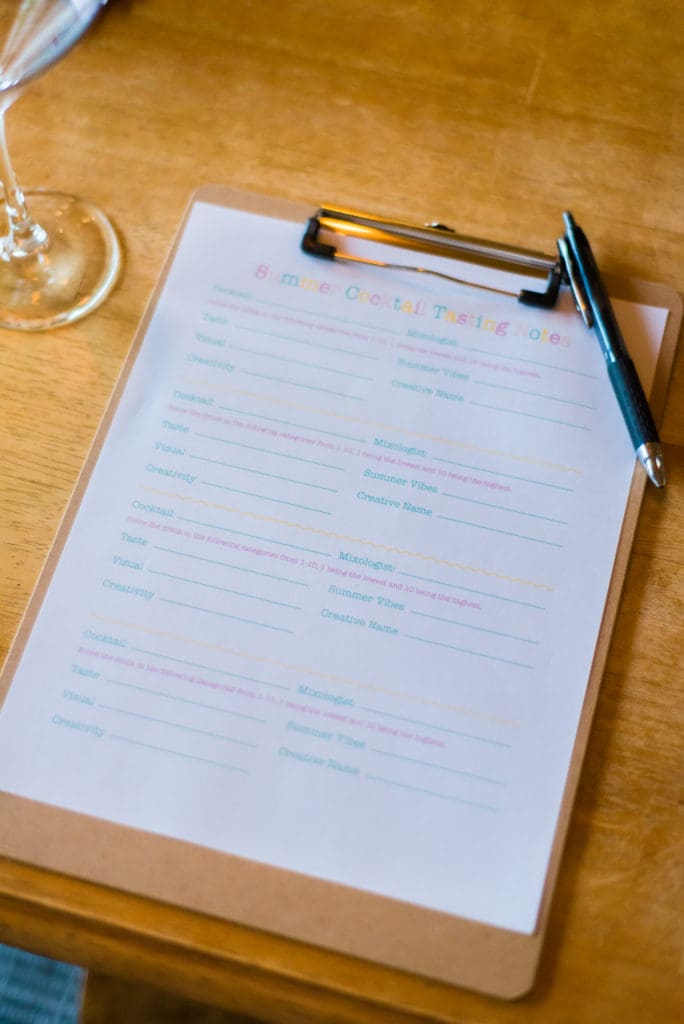 Summer Cocktail Tasting Notes
Cocktail: Mixologist:
Score the drink in the following categories from 1-10, 1 being the lowest and 10 being the highest.
Taste Summer Vibes
Visual Creative Name
Creativity
Cocktail: Mixologist:
Score the drink in the following categories from 1-10, 1 being the lowest and 10 being the highest.
Taste Summer Vibes
Visual Creative Name
Creativity
Cocktail: Mixologist:
Score the drink in the following categories from 1-10, 1 being the lowest and 10 being the highest.
Taste Summer Vibes
Visual Creative Name
Creativity
Cocktail: Mixologist:
Score the drink in the following categories from 1-10, 1 being the lowest and 10 being the highest.
Taste Summer Vibes
Visual Creative Name
Creativity